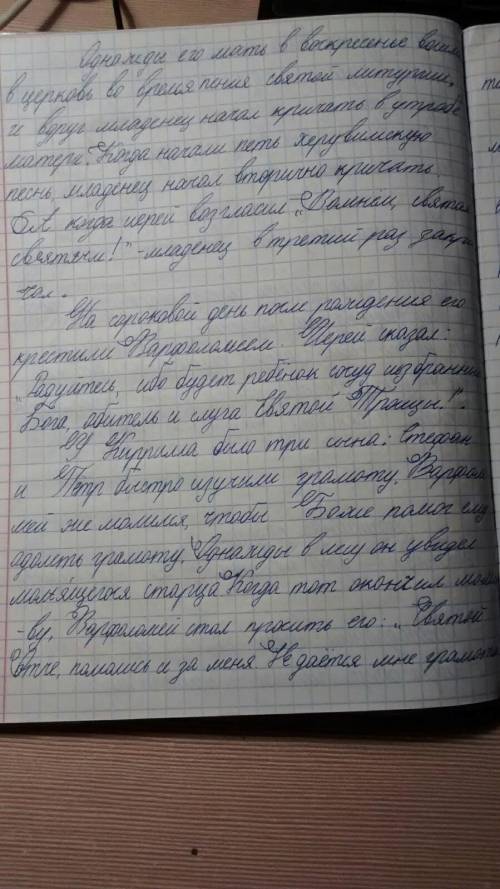 Однажды его мать в воскресенье вошла
в церковь во время пения святой литургии,
и вдруг младенец начал кричать в утробе
матери. Когда начали петь херувимскую
песнь, младенец начал вторично кричать.
А когда иерей возгласил „Вомнем, святая
святым!" - младенец в третий раз закри
чал.
На сороковой день после рождения его
крестили Варфоломеем. Иерей сказал:
„Радуйтесь, ибо будет ребёнок сосуд избранный
Бога, обитель и слуга Святой Троицы!".
У Кирилла было три сына: Стефан
и Пётр быстро изучили грамоту. Варфоло
мей же молился, чтобы Боже помог ему
одолеть грамоту. Однажды в лесу он увидел
молящегося старца. Когда тот окончил молит
-ву, Варфоломей стал просить его: „Святой
Отче, помолись и за меня. Не даётся мне грамота